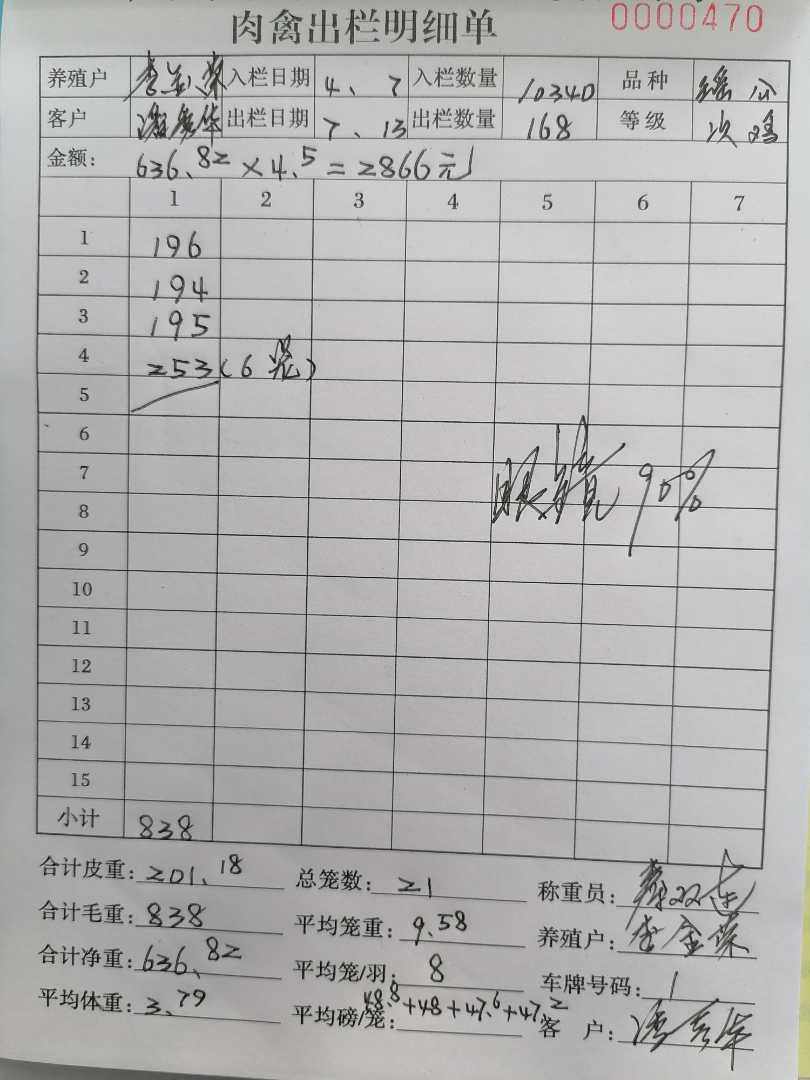 肉禽出栏明细单 0000470
养殖户 李金荣 入栏日期 4、7 入栏数量 10340 品种 瑶
客户 出栏日期 7、13 出栏数量 168 等级 次鸡
金额: 636.82×4.5=2866元
1 2 3 4 5 6 7
1 196
2 194
3 195
4 253(6笼)
5
6
7 眼镜90%
8
9
10
11
12
13
14
15
小计 838
合计皮重: 201.18 总笼数: 21 称重员:
合计毛重: 838 平均笼重: 9.58 养殖户: 李金荣
合计净重: 636.82 平均笼/羽: 8 车牌号码: 1
平均体重: 3.79 平均磅/笼: 48.8+48+47.6+47.2 客户: